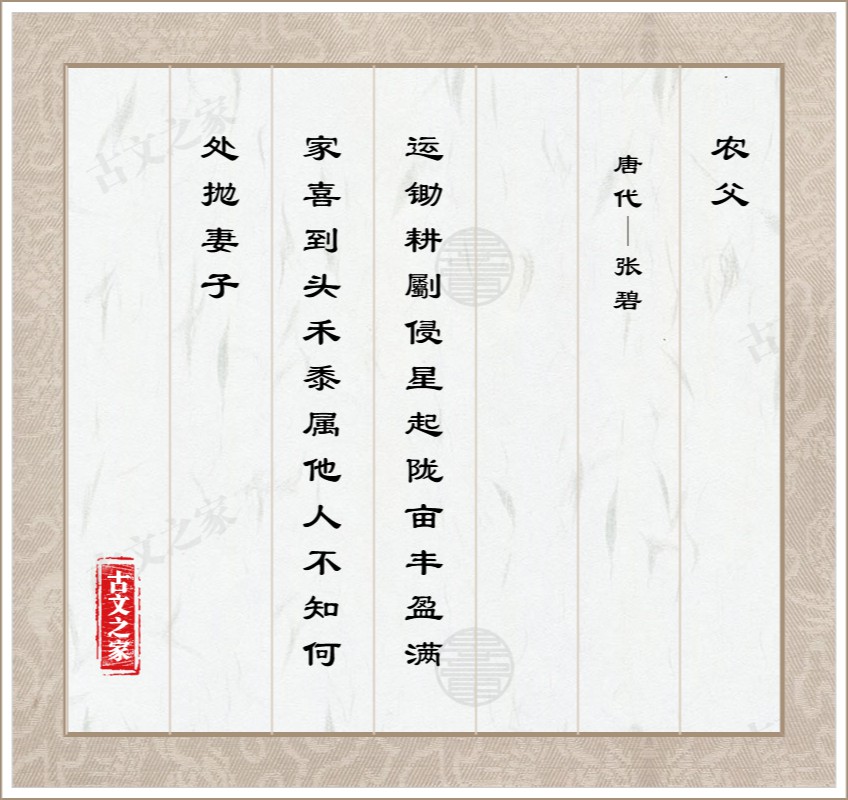 农父
唐代—张碧
运锄耕劚侵星起陇亩丰盈满
家喜到头禾黍属他人不知何
处抛妻子
古文之家
古文之家
古文之家
古